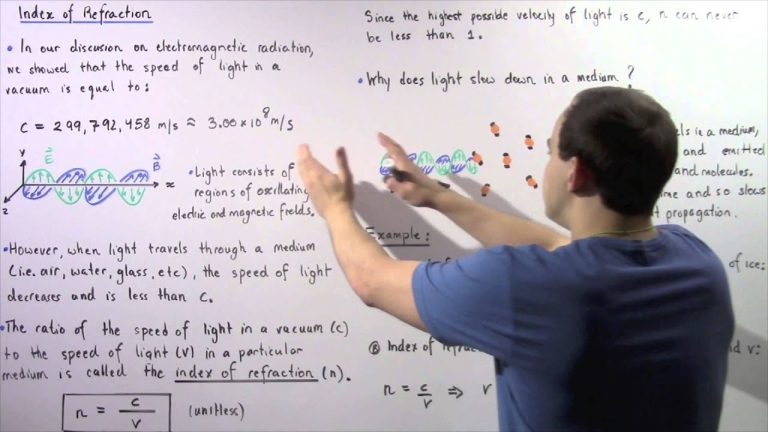 Index of Refraction
• In our discussion on electromagnetic radiation,
we showed that the speed of light in a
vacuum is equal to:
c = 299,792,458 m/s ≈ 3.00 × 10⁸ m/s
Y
E
B
x
z
• Light consists of
regions of oscillating
electric and magnetic fields.
• However, when light travels through a medium
(i.e. air, water, glass, etc), the speed of light
decreases and is less than c.
• The ratio of the speed of light in a vacuum (c)
to the speed of light (v) in a particular
medium is called the index of refraction (n).
n = c/v (unitless)
Since the highest possible velocity of light is c, n can never
be less than 1.
• Why does light slow down in a medium?
in a medium,
and emitted
and molecules.
and so slows
propagation.
Example:
of ice:
B Index of
v:
n = c/v ⇒ v